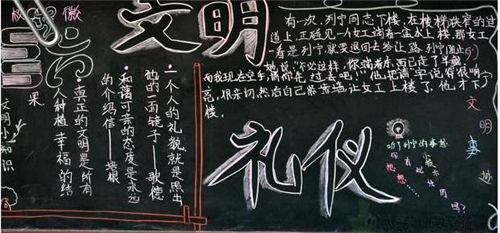 文明
礼仪
有一次,列宁同志下楼,在楼梯狭窄的过
道上,正碰见一个女工端着一盆水上楼,那女工
一看是列宁,就要退回去给让路,列宁阻止
她说:"不必这样,你端着东西已走了半截,
而我现在空手,请你先过去吧!!!"他把请字说得很响
亮,很亲切,然后自己紧靠墙让女工上楼了,他才下
楼。
一个人的礼貌就是照出
他的三面镜子——歌德
和蔼可亲的态度是永远
的介绍信——培根
真正的文明是所有
人种植幸福的结
果
文明小知识
文明事迹